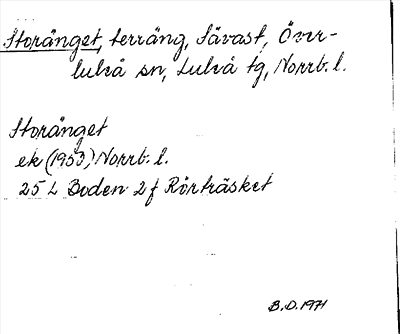 Storänget, terräng, Sävast, Över-
luleå sn, Luleå tg, Norrb. l.
Storänget
ek (1953) Norrb. l.
25 L Boden 2 f Rörträsket
B.D. 1971